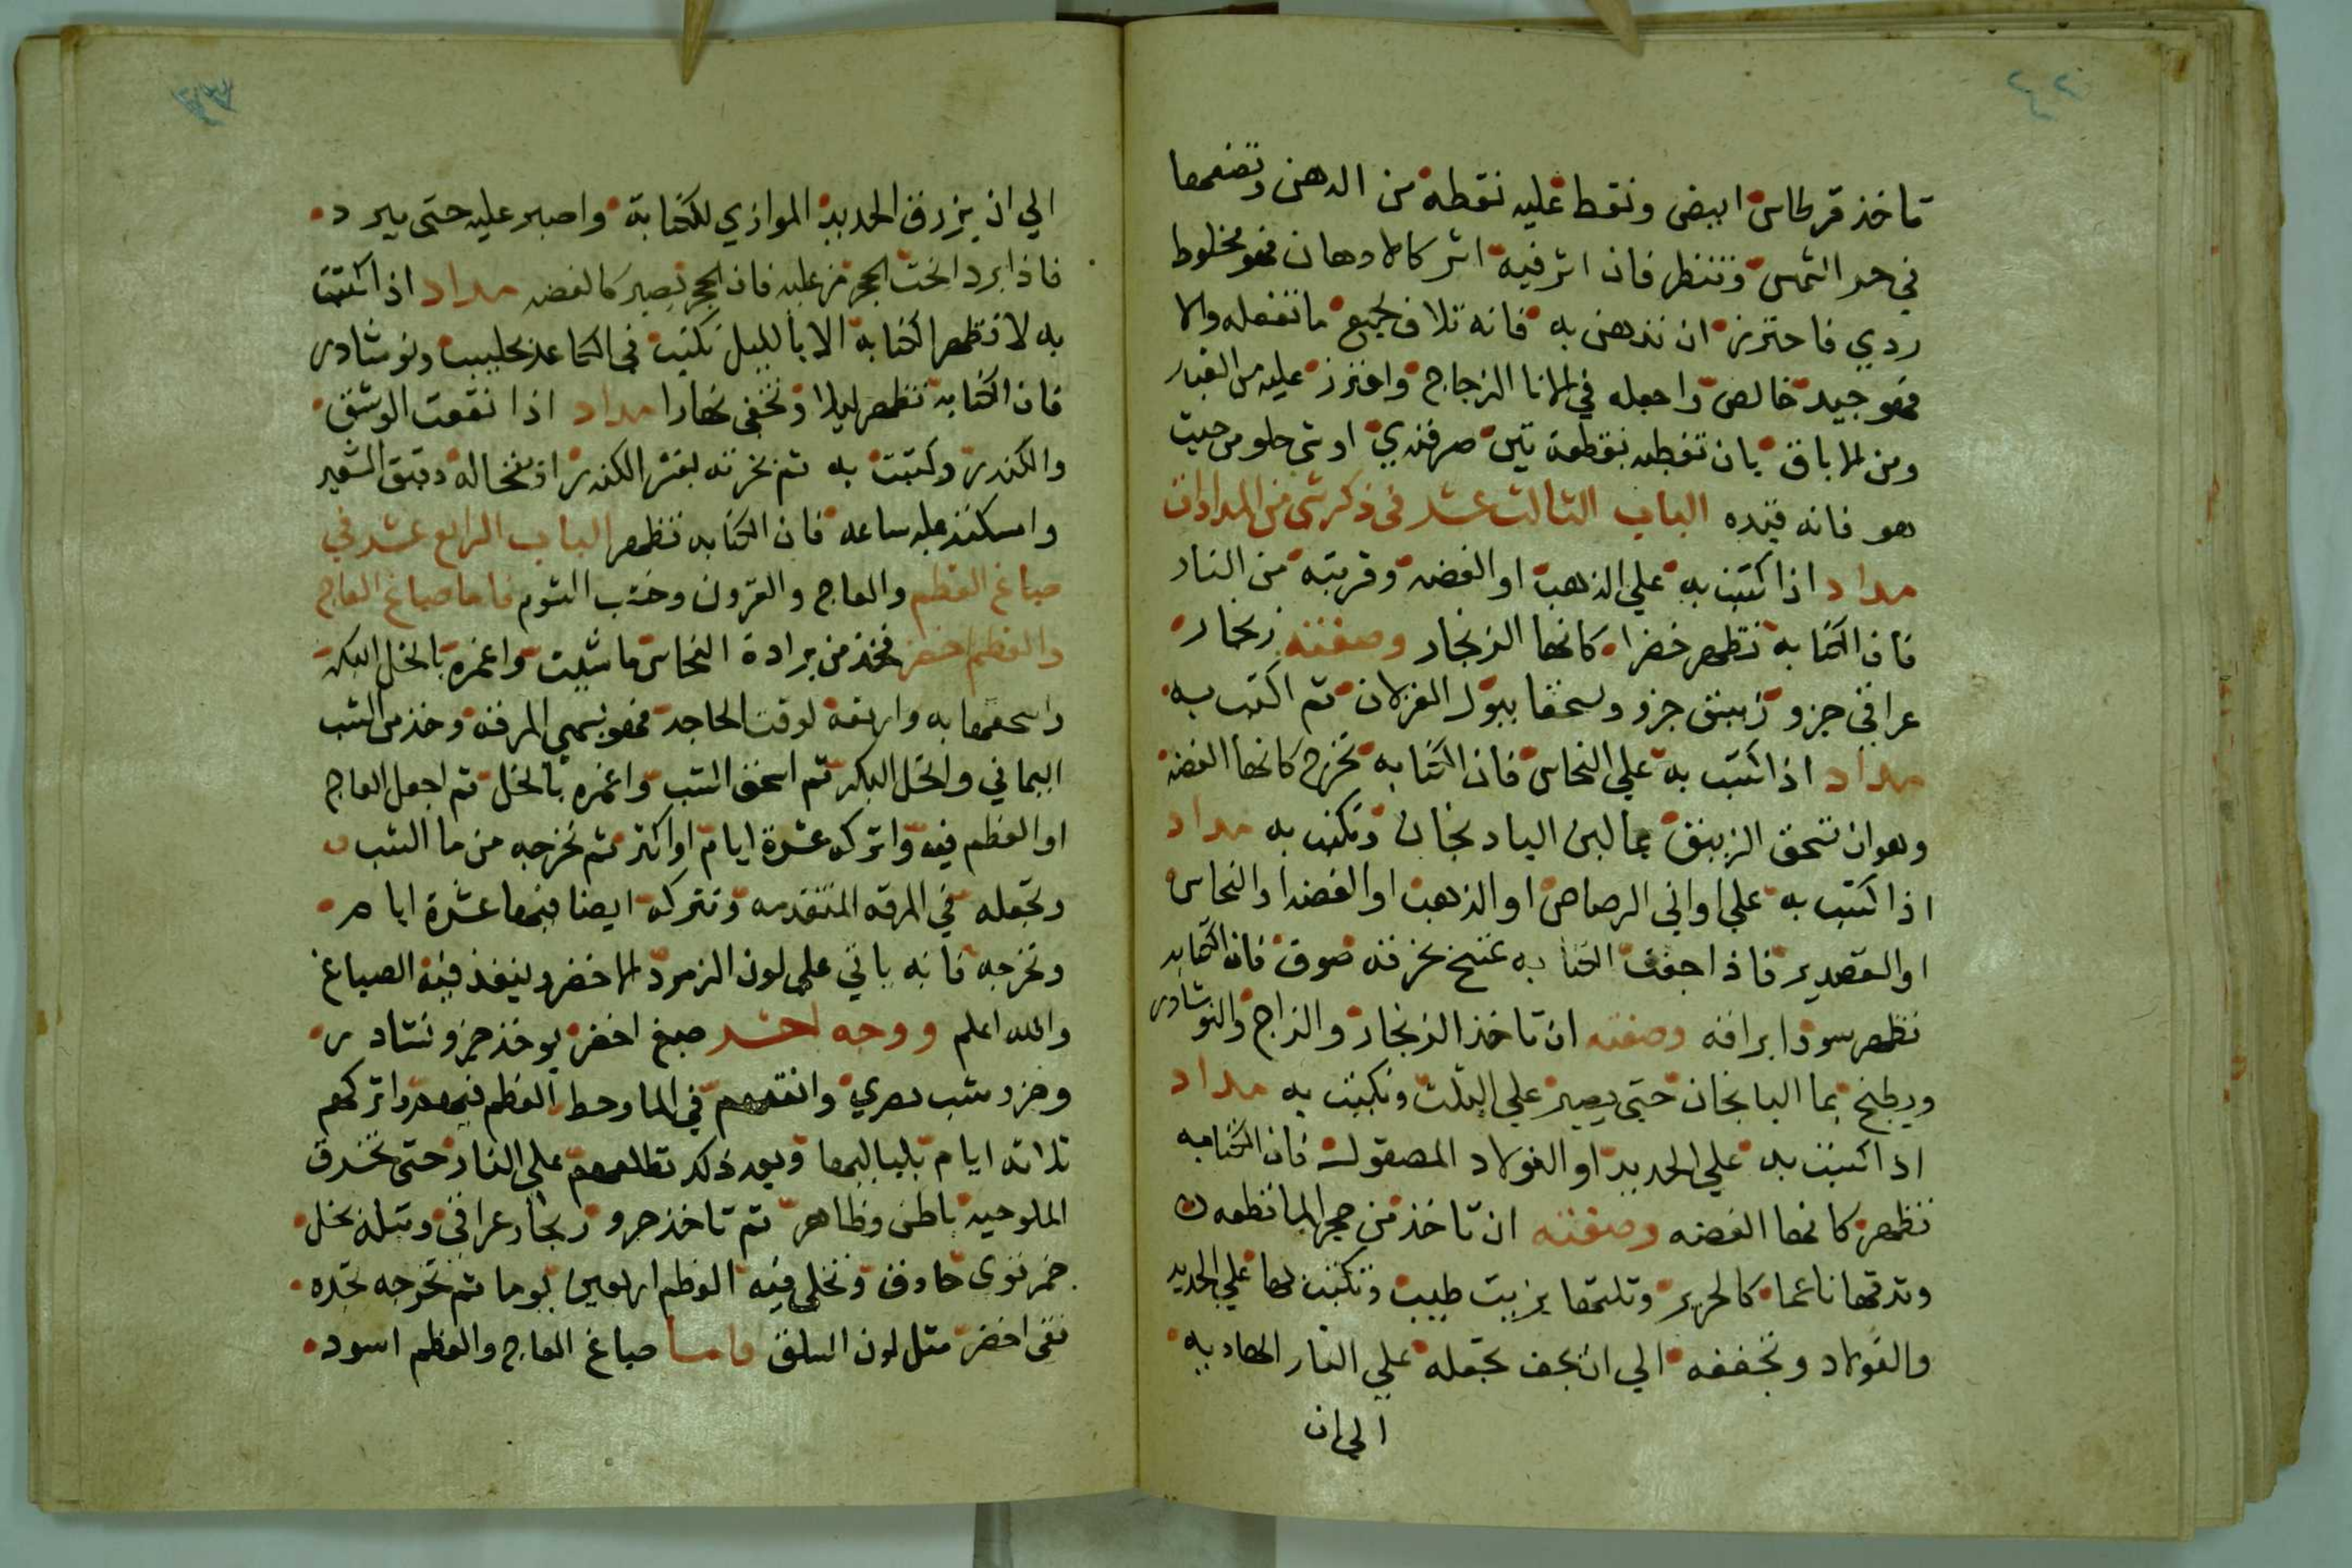 تاخذ قرطاس ابيض ونقط عليه نقطه من الدهن وتضعها
في حر الشمس وتنظر فان اثر فيه اثر كالادهان فهو مخلوط
ردي فاحترز ان تدهن به فانه تلاف لجميع ما تفعله والا
فهو جيد خالص واجعله في الانا الزجاج واحترز عليه من الغبار
ومن الاباق بان تغطيه بقطعة تين صرفندي او شي حلو من حيث
هو فانه قيده الباب الثالث عشر في ذكر شي من المدادات
مداد اذا كتبت به علي الذهب او الفضه وقربته من النار
فان الكتابة تظهر خضرا كانها الزنجار وصفته زنجار
عراقي جزو زيبق جزو وسحقا ببول الغزلان ثم اكتب به
مداد اذا كتبت به علي النحاس فان الكتابه تخرج كانها الفضة
وهو ان تسحق الزيبق بما لبن الباد نجان وتكتب به مداد
اذا كتبت به علي اواني الرصاص او الذهب او الفضه او النحاس
او القصدير فاذا جفت الكتابه تمسح بخرقه صوف فان الكتابه
تظهر سودا براقه وصفته ان تاخذ الزنجار والزاج والنوشادر
ويطبخ بما البانجان حتى يصير علي الثلث وتكتب به مداد
اذا كتبت به علي الحديد او الفولاد المصقول فان الكتابه
تظهر كانها الفضه وصفته ان تاخذ من حجر الما نطعه
وتدقها ناعما كالحرير وتلتها بزيت طيب وتكتب بها علي الحديد
والفولاد وتجففه الي ان يجف تجعله علي النار الهاديه
الي ان
الي ان يزرق الحديد الموازي للكتابة واصبر عليه حتى يبرد
فاذا برد انحت الحجر من عليه فان الحجر تصير كالفضه مداد اذا كتبت
به لا تظهر الكتابة الا بالليل تكتب في الكاغد بحليب ونوشادر
فان الكتابه تظهر ليلا وتختفى نهارا مداد اذا نقعت الوشق
والكندر وكتبت به ثم بخرته بقشر الكندر او بنخاله دقيق الشعير
وامسكته عليه ساعه فان الكتابه تظهر الباب الرابع عشر في
صباغ العظم والعاج والقرون وخشب التوم فاما صباغ العاج
والعظم اخضر فخذ من برادة النحاس ما شيت واغمره بالخل البكر
واسحقها به وارفعه لوقت الحاجه فهو يسمي المرقه وخذ من الشب
اليماني والخل البكر ثم اسحق الشب واغمره بالخل ثم اجعل العاج
او العظم فيه واتركه عشرة ايام او اكثر ثم تخرجه من ما الشب
وتجعله في المرقه المتقدمه وتتركه ايضا فيها عشرة ايام
وتخرجه فانه ياتي علي لون الزمرد الاخضر ولينفذ فيه الصباغ
والله اعلم ووجه اخر صبغ اخضر يوخذ جزو نشادر
وجزو شب مصري وانقعهم في الما وحط العظم فيهم واتركهم
ثلاثه ايام بلياليها وبعد ذلك تطلعهم علي النار حتى تخرق
الملوحيه باطن وظاهر ثم تاخذ جزو زنجار عراقي وتبله بخل
خمر قوى حاذق وتخلي فيه العظم اربعين يوما ثم تخرجه تجده
نقى اخضر مثل لون السلق واما صباغ العاج والعظم اسود